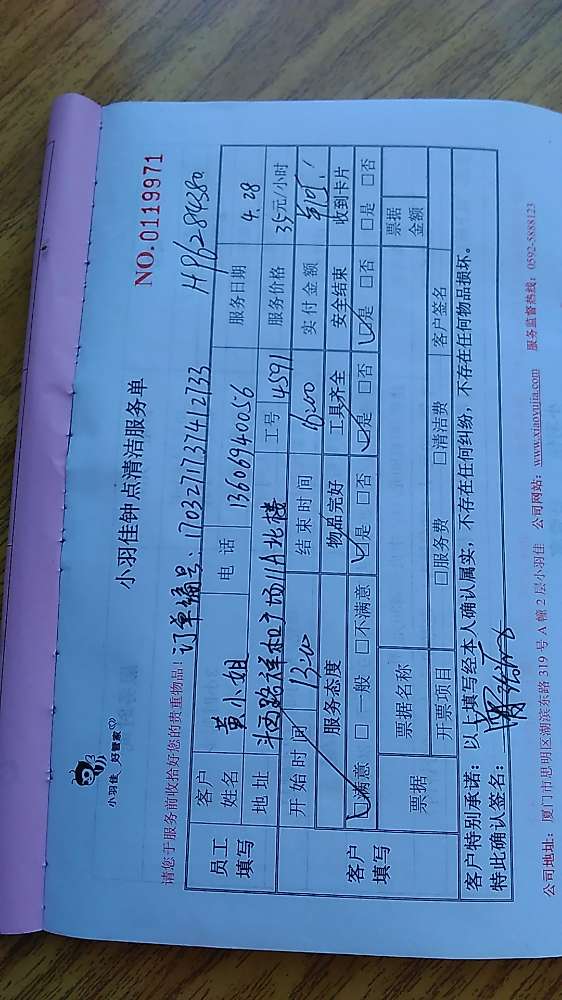 小羽佳 好管家
小羽佳钟点清洁服务单
NO.0119971
请您于服务前收拾好您的贵重物品！订单编号：1703271737412733 HP6284380
员工填写 客户姓名 黄小姐 电话 13606940056 服务日期 4.28
地址 祥和广场11A北楼 工号 4591 服务价格 35元/小时
客户填写 开始时间 13:00 结束时间 16:00 实付金额
服务态度 物品完好 工具齐全 安全结束 收到卡片
☑满意 □一般 □不满意 ☑是 □否 ☑是 □否 ☑是 □否 □是 □否
票据 票据名称 票据金额
开票项目 □服务费 □清洁费 客户签名
客户特别承诺：以上填写经本人确认属实，不存在任何纠纷，不存在任何物品损坏。
特此确认签名：
公司地址：厦门市思明区湖滨东路 319 号 A 幢 2 层小羽佳 公司网站：www.xiaoyujia.com 服务监督热线：0592-5888123